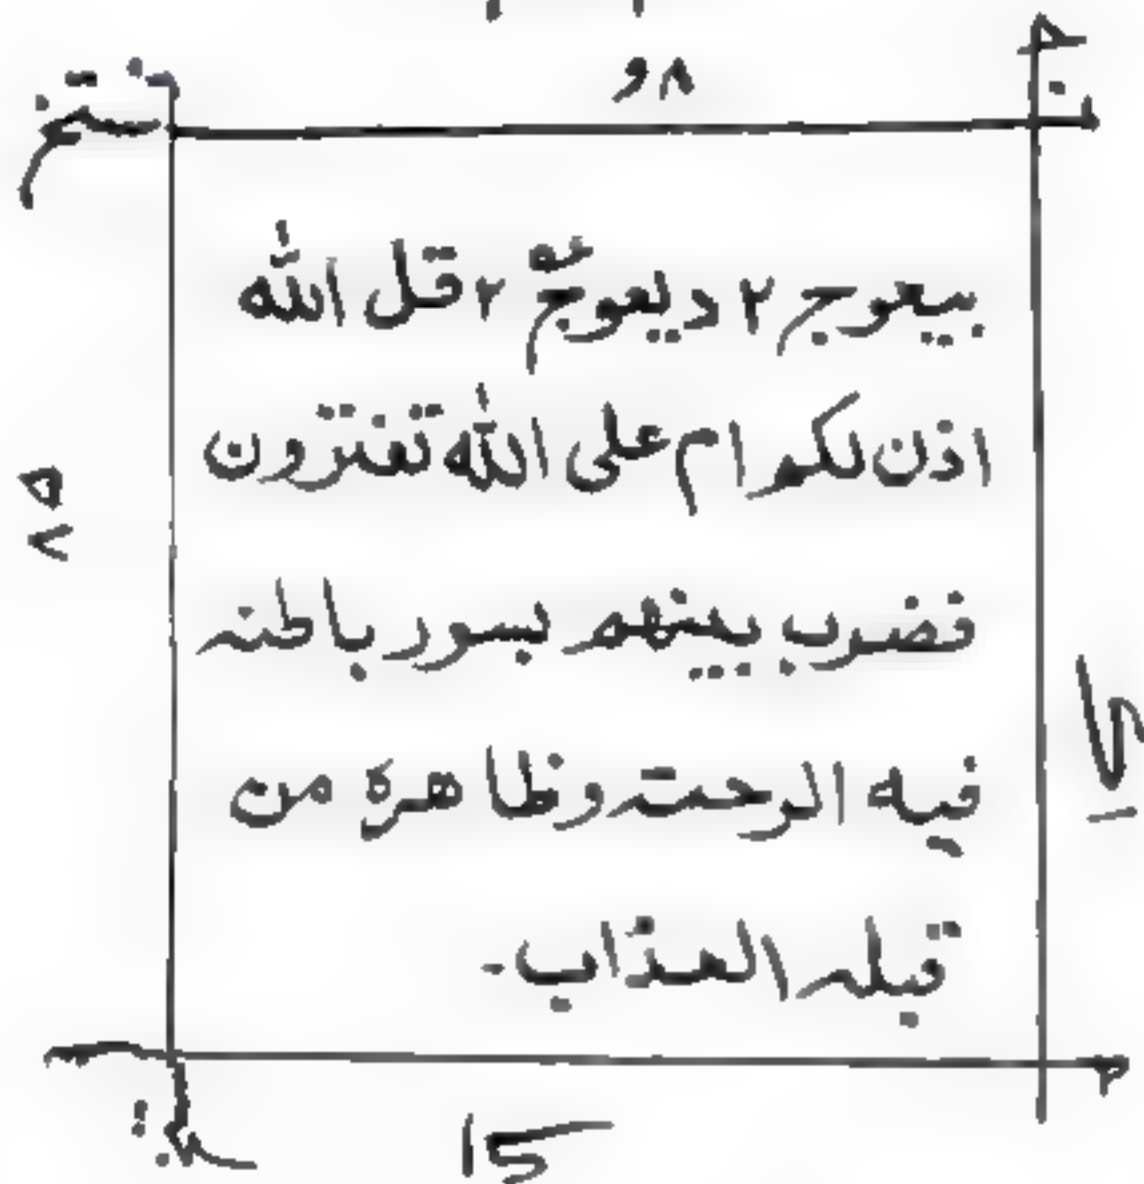 ٨و
بيعوج ٢ ديعوج ٢ قل الله
اذن لكم ام على الله تفترون
فضرب بينهم بسور باطنه
فيه الرحمة وظاهره من
قبله العذاب.